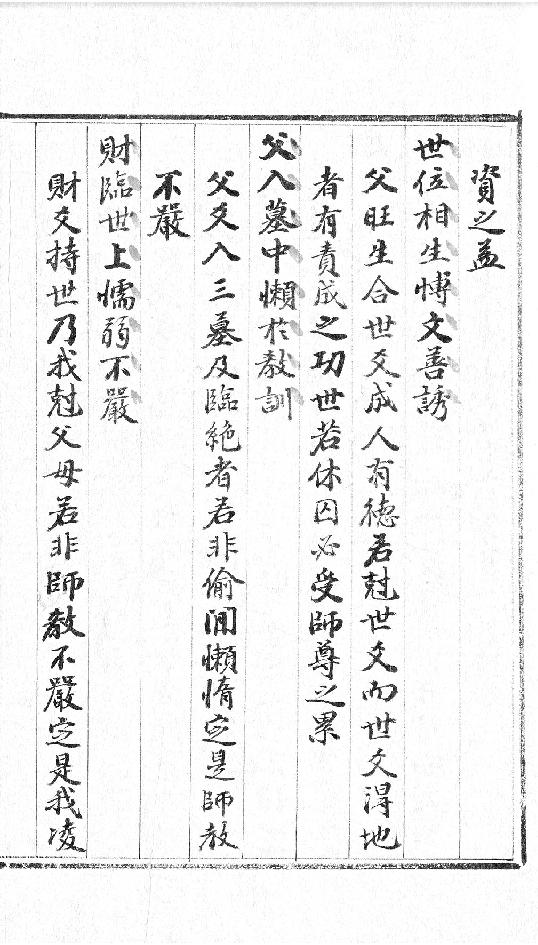 資之益
世位相生博文善誘
父旺生合世爻成人有德若尅世爻而世爻得地
者有責成之功世若休囚必受師尊之累
父入墓中懶於教訓
父爻入三墓及臨絕者若非偷閒懶惰定是師教
不嚴
財臨世上懦弱不嚴
財爻持世乃我尅父母若非師教不嚴定是我凌